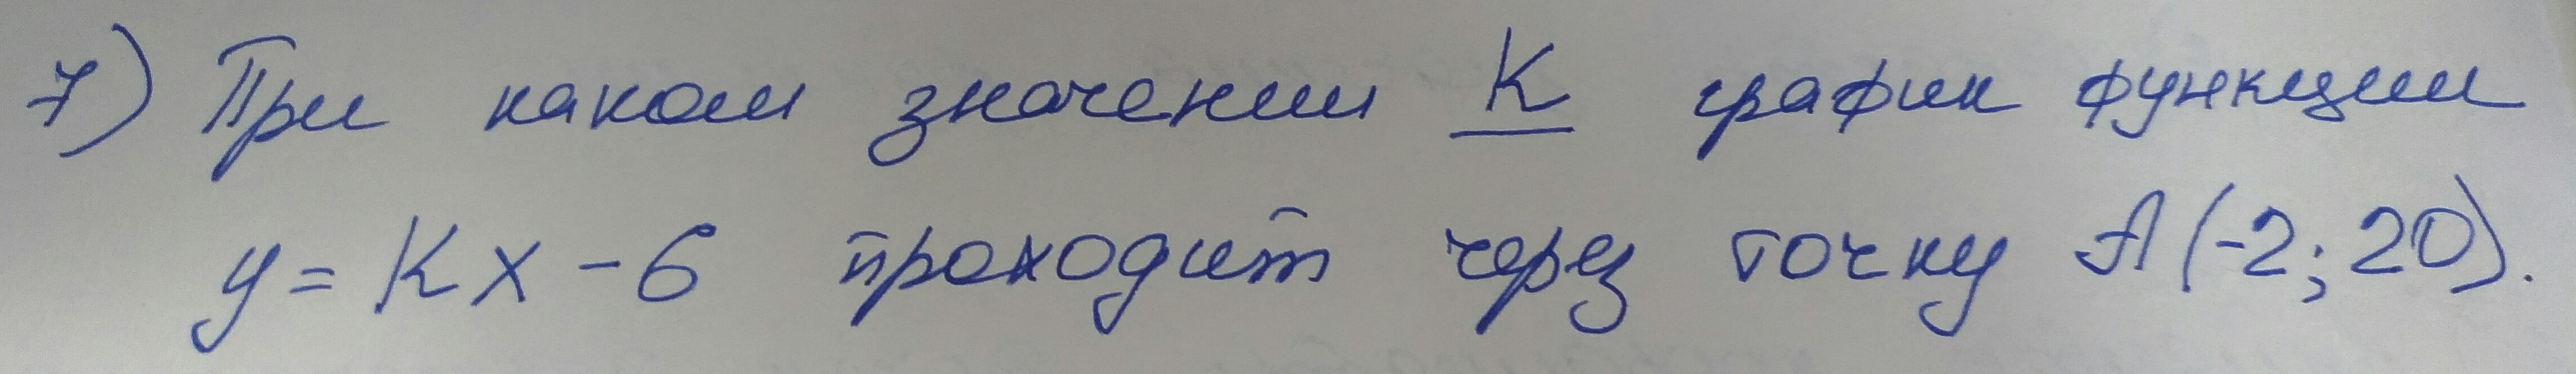 7) При каком значении К график функции
y = Kx - 6 проходит через точку A(-2; 20).